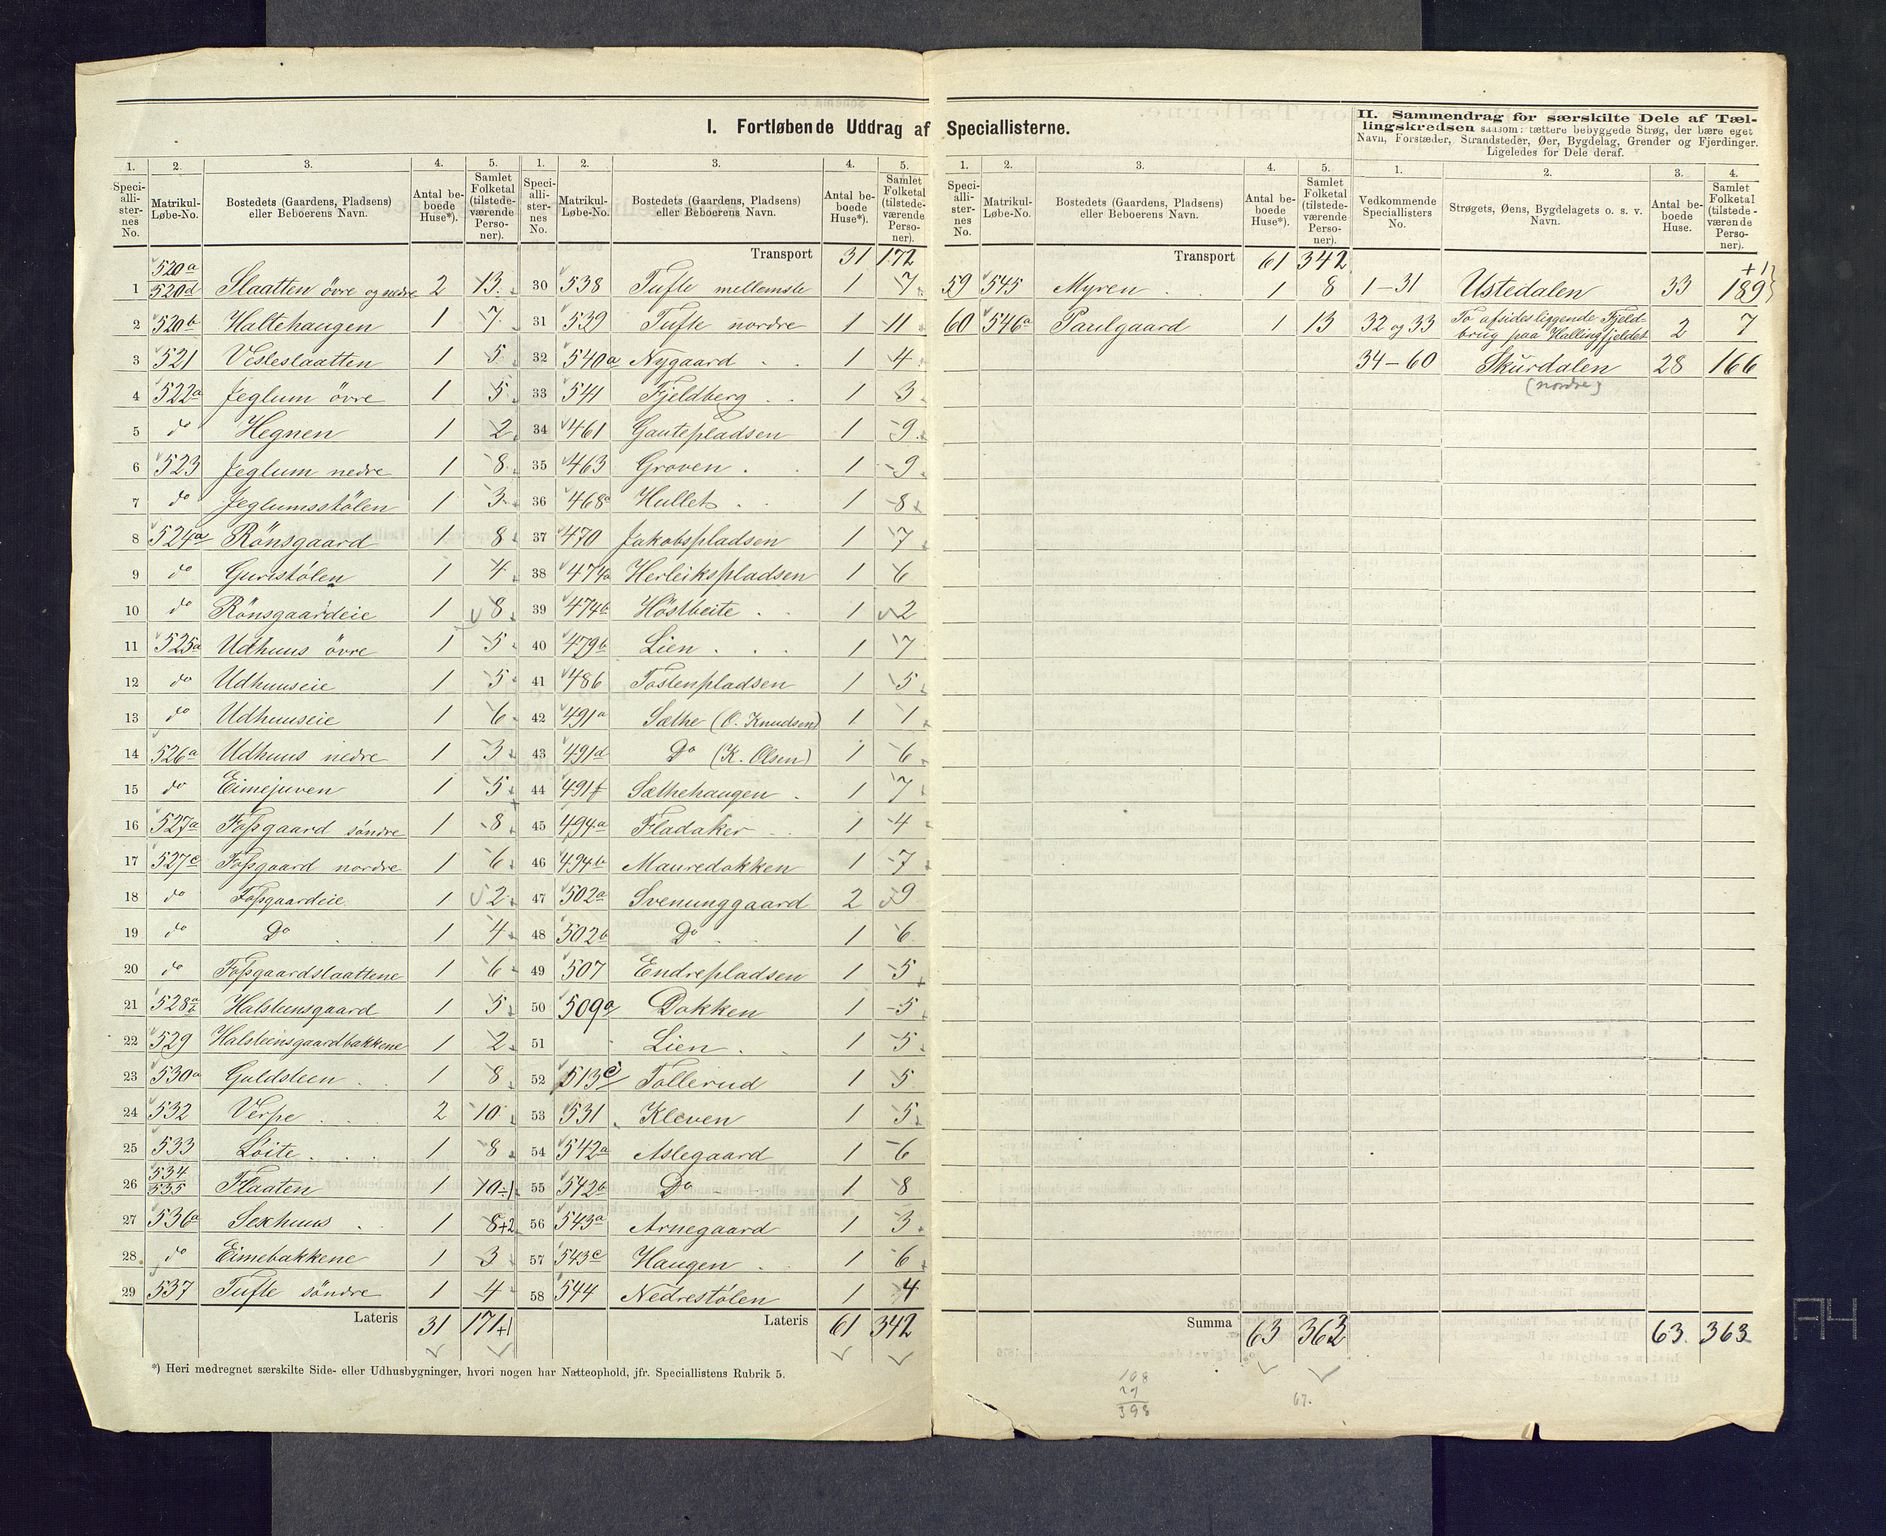 I. Fortløbende Uddrag af Speciallisterne.
II. Sammendrag for særskilte Dele af Tællingskredsen saasom: tættere bebyggede Strøg, der bære eget
Navn, Forstæder, Strandsteder, Øer, Bygdelag, Grender og Fjerdinger.
Ligeledes for Dele deraf.
1. 2. 3. 4. 5.
Speciallisternes No. Matrikul-Løbe-No. Bostedets (Gaardens, Pladsens) eller Beboerens Navn. Antal beboede Huse*). Samlet Folketal (tilstedeværende Personer).
1 520a 520d Slaatten övre og nedre 2 13
2 520b Haltehaugen 1 7
3 521 Vesleslaatten 1 5
4 522a Jeglum övre 1 5
5 do Hegnen 1 2
6 523 Jeglum nedre 1 8
7 do Jeglumsstölen 1 3
8 524a Rönsgaard 1 8
9 do Guristölen 1 4
10 do Rönsgaardeie 1 8
11 525a Udhuus övre 1 5
12 do Udhuuseie 1 5
13 do Udhuuseie 1 6
14 526a Udhuus nedre 1 3
15 do Eimejuven 1 5
16 527a Fossgaard söndre 1 8
17 527c Fossgaard nordre 1 6
18 do Fossgaardeie 1 2
19 do Do 1 4
20 do Fossgaardslaattene 1 6
21 528a b Halsteensgaard 1 5
22 529 Halsteensgaardbakkene 1 2
23 530a Guldsteen 1 8
24 532 Verpe 2 10
25 533 Löite 1 8
26 534 535 Flaaten 1 10÷1
27 536a Sexhuus 1 8+2
28 do Eimebakkene 1 3
29 537 Tufte söndre 1 4
Lateris 31 171+1
*) Heri medregnet særskilte Side- eller Udhusbygninger, hvori nogen har Natteophold, jfr. Speciallistens Rubrik 5.
1. 2. 3. 4. 5.
Speciallisternes No. Matrikul-Løbe-No. Bostedets (Gaardens, Pladsens) eller Beboerens Navn. Antal beboede Huse*). Samlet Folketal (tilstedeværende Personer).
Transport 31 172
30 538 Tufte mellemste 1 7
31 539 Tufte nordre 1 11
32 540a Nygaard 1 4
33 541 Fjeldberg 1 3
34 461 Gautepladsen 1 9
35 463 Groven 1 9
36 468a Hullet 1 8
37 470 Jakobspladsen 1 7
38 474a Herleikspladsen 1 6
39 474b Höstbeite 1 2
40 479b Lien 1 7
41 486 Tostenpladsen 1 5
42 491a Sæthe (O. Knudsen) 1 1
43 491d Do (K. Olsen) 1 6
44 491f Sæthehaugen 1 7
45 494a Fladaker 1 4
46 494b Mauredokken 1 7
47 502a Svenunggaard 2 9
48 502b Do 1 6
49 507 Endrepladsen 1 5
50 509a Dokken 1 5
51 Lien 1 5
52 513c Tollerud 1 5
53 531 Kleven 1 5
54 542a Aslegaard 1 6
55 542b Do 1 8
56 543a Arnegaard 1 3
57 543c Haugen 1 6
58 544 Nedrestölen 1 4
Lateris 61 342
1. 2. 3. 4. 5.
Speciallisternes No. Matrikul-Løbe-No. Bostedets (Gaardens, Pladsens) eller Beboerens Navn. Antal beboede Huse*). Samlet Folketal (tilstedeværende Personer).
Transport 61 342
59 545 Myren 1 8
60 546a Paulgaard 1 13
Summa 63 363
1. 2. 3. 4.
Vedkommende Speciallisters No. Strøgets, Øens, Bygdelagets o. s. v. Navn. Antal beboede Huse. Samlet Folketal (tilstedeværende Personer).
+1
1–31 Ustedalen 33 189
32 og 33 To afsides liggende Fjeldbrug paa Hallingfjeldet 2 7
34–60 Skurdalen 28 166
(nordre)
63. 363
398
67.